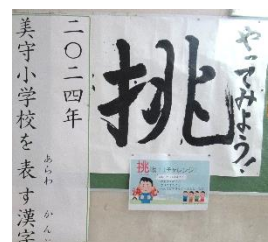 やってみよう！
挑
二〇二四年
美守小学校を表す漢字
あらわ かん
挑
チャレンジ